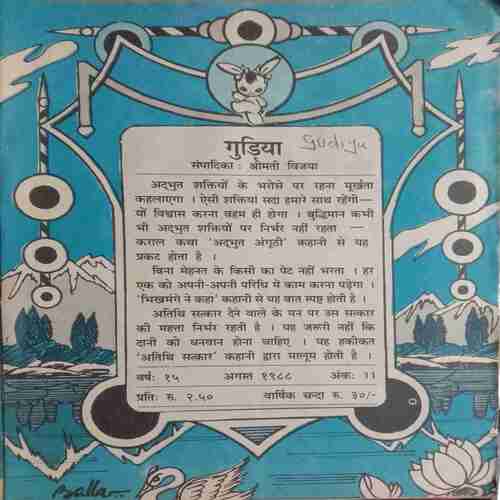 गुड़िया gudiya
संपादिका : श्रीमती विजया
अद्‌भुत शक्तियों के भरोसे पर रहना मूर्खता
कहलाएगा । ऐसी शक्तियां सदा हमारे साथ रहेंगी—
यों विश्वास करना वहम ही होगा । बुद्धिमान कभी
भी अद्‌भुत शक्तियों पर निर्भर नहीं रहता —
कराल कथा 'अद्‌भुत अंगूठी' कहानी से यह
प्रकट होता है ।
बिना मेहनत के किसी का पेट नहीं भरता । हर
एक को अपनी-अपनी परिधि में काम करना पड़ेगा ।
'भिखमंगे ने कहा' कहानी से यह बात स्पष्ट होती है ।
अतिथि सत्कार देने वाले के मन पर उस सत्कार
की महत्ता निर्भर रहती है । यह जरूरी नहीं कि
दानी को धनवान होना चाहिए । यह हकीकत
'अतिथि सत्कार' कहानी द्वारा मालूम होती है ।
वर्ष: १५ अगस्त १९८८ अंक: 11
प्रति: रु. २.५० वार्षिक चन्दा रु. ३०/-